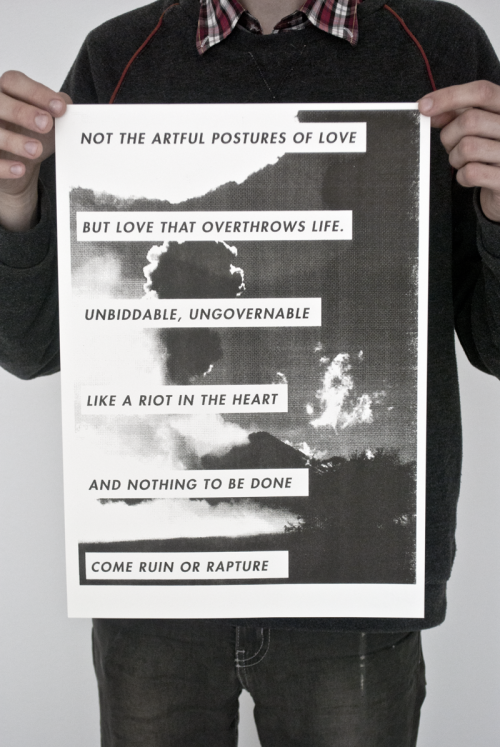 NOT THE ARTFUL POSTURES OF LOVE
BUT LOVE THAT OVERTHROWS LIFE.
UNBIDDABLE, UNGOVERNABLE
LIKE A RIOT IN THE HEART
AND NOTHING TO BE DONE
COME RUIN OR RAPTURE